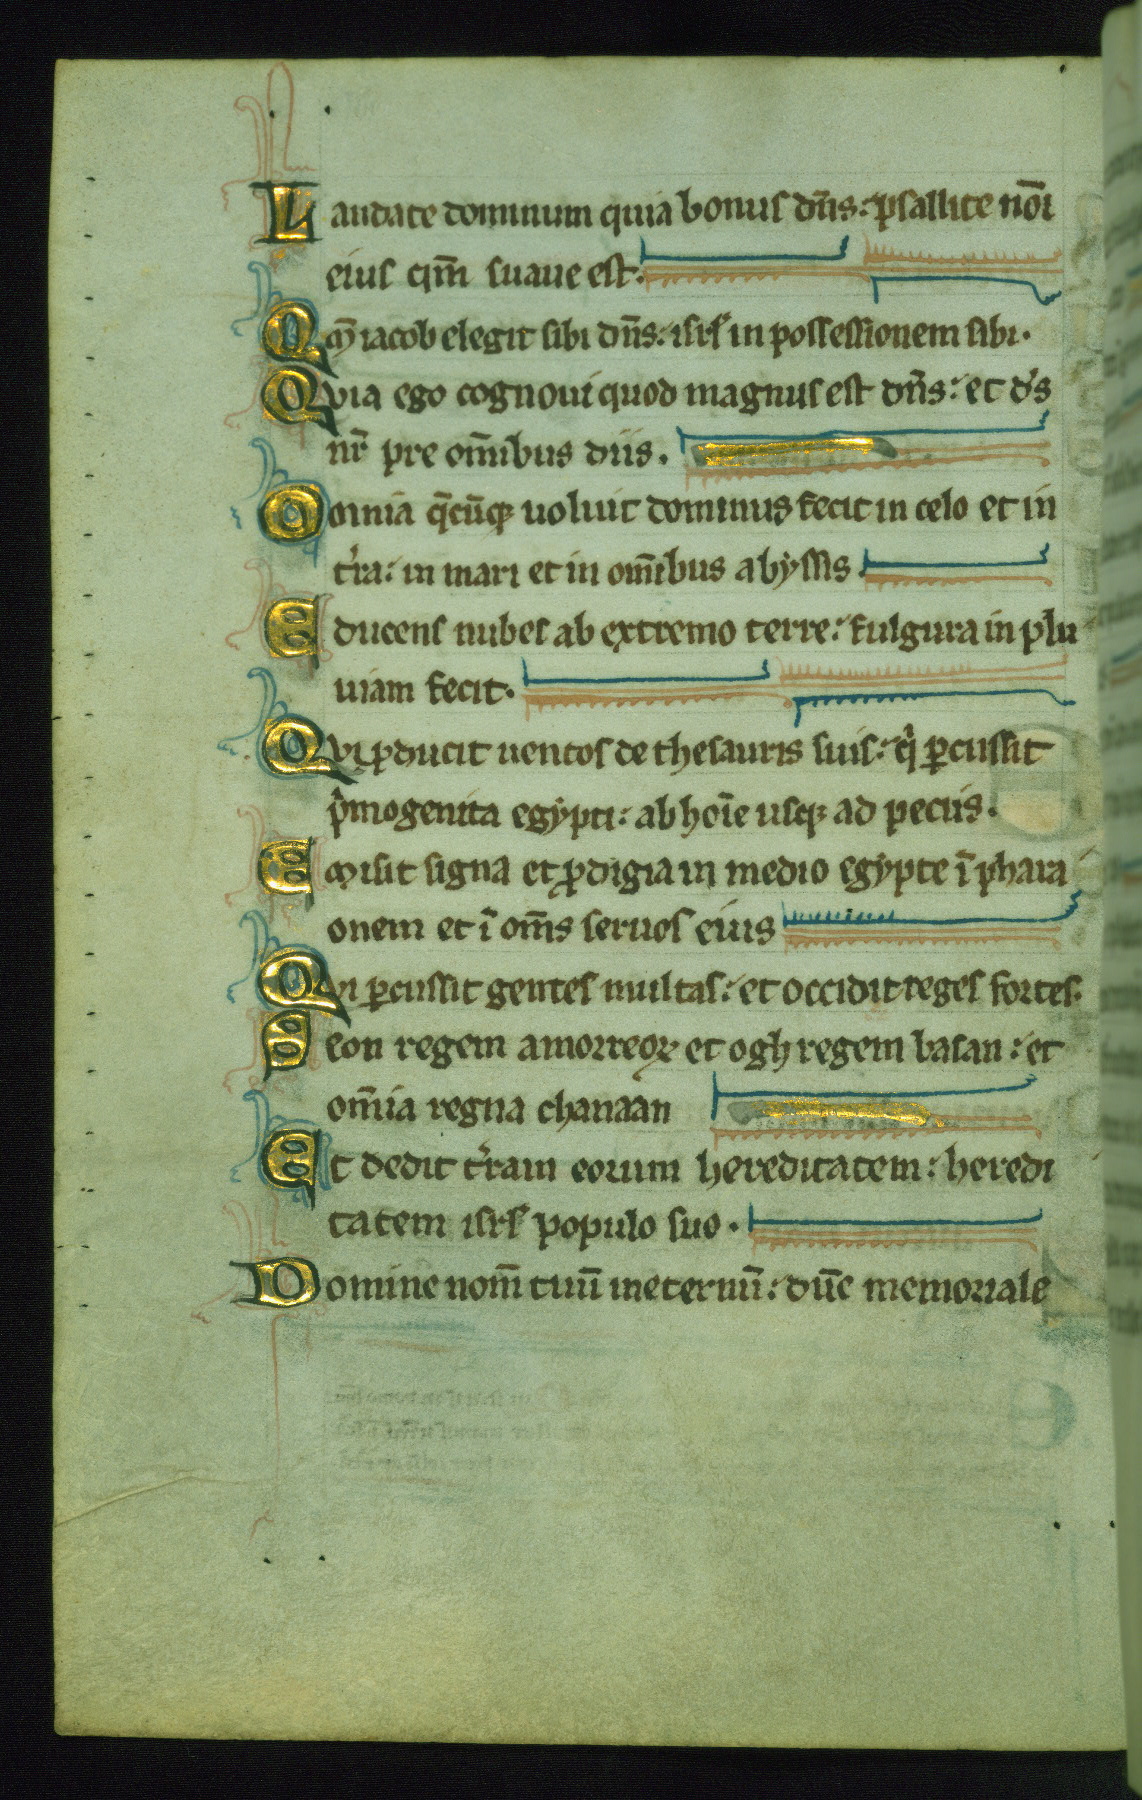 Laudate dominum quia bonus dñs: psallite nōi
eius qm̄ suaue est.
Qm̄ iacob elegit sibi dñs: isrl̄ in possessionem sibi.
Quia ego cognoui quod magnus est dñs: et ds
nr̄ pre om̄ibus diis.
Omnia q̄cūqꝫ uoluit dominus fecit in celo et in
tra: in mari et in om̄ibus abyssis.
Educens nubes ab extremo terre: fulgura in plu
uiam fecit.
Qui ꝓducit uentos de thesauris suis: qi ꝑcussit
pimogenita egypti: ab hoīe usqꝫ ad pecus.
Emisit signa et ꝓdigia in medio egypte ī phara
onem et ī om̄s seruos eius
Qui ꝑcussit gentes multas: et occidit reges fortes.
Seon regem amorreoꝝ et ogh regem basan: et
om̄ia regna chanaan
Et dedit tram eorum hereditatem: heredi
tatem isrl̄ populo suo.
Domine nom̄ tuū in eternū: dn̄e memoriale